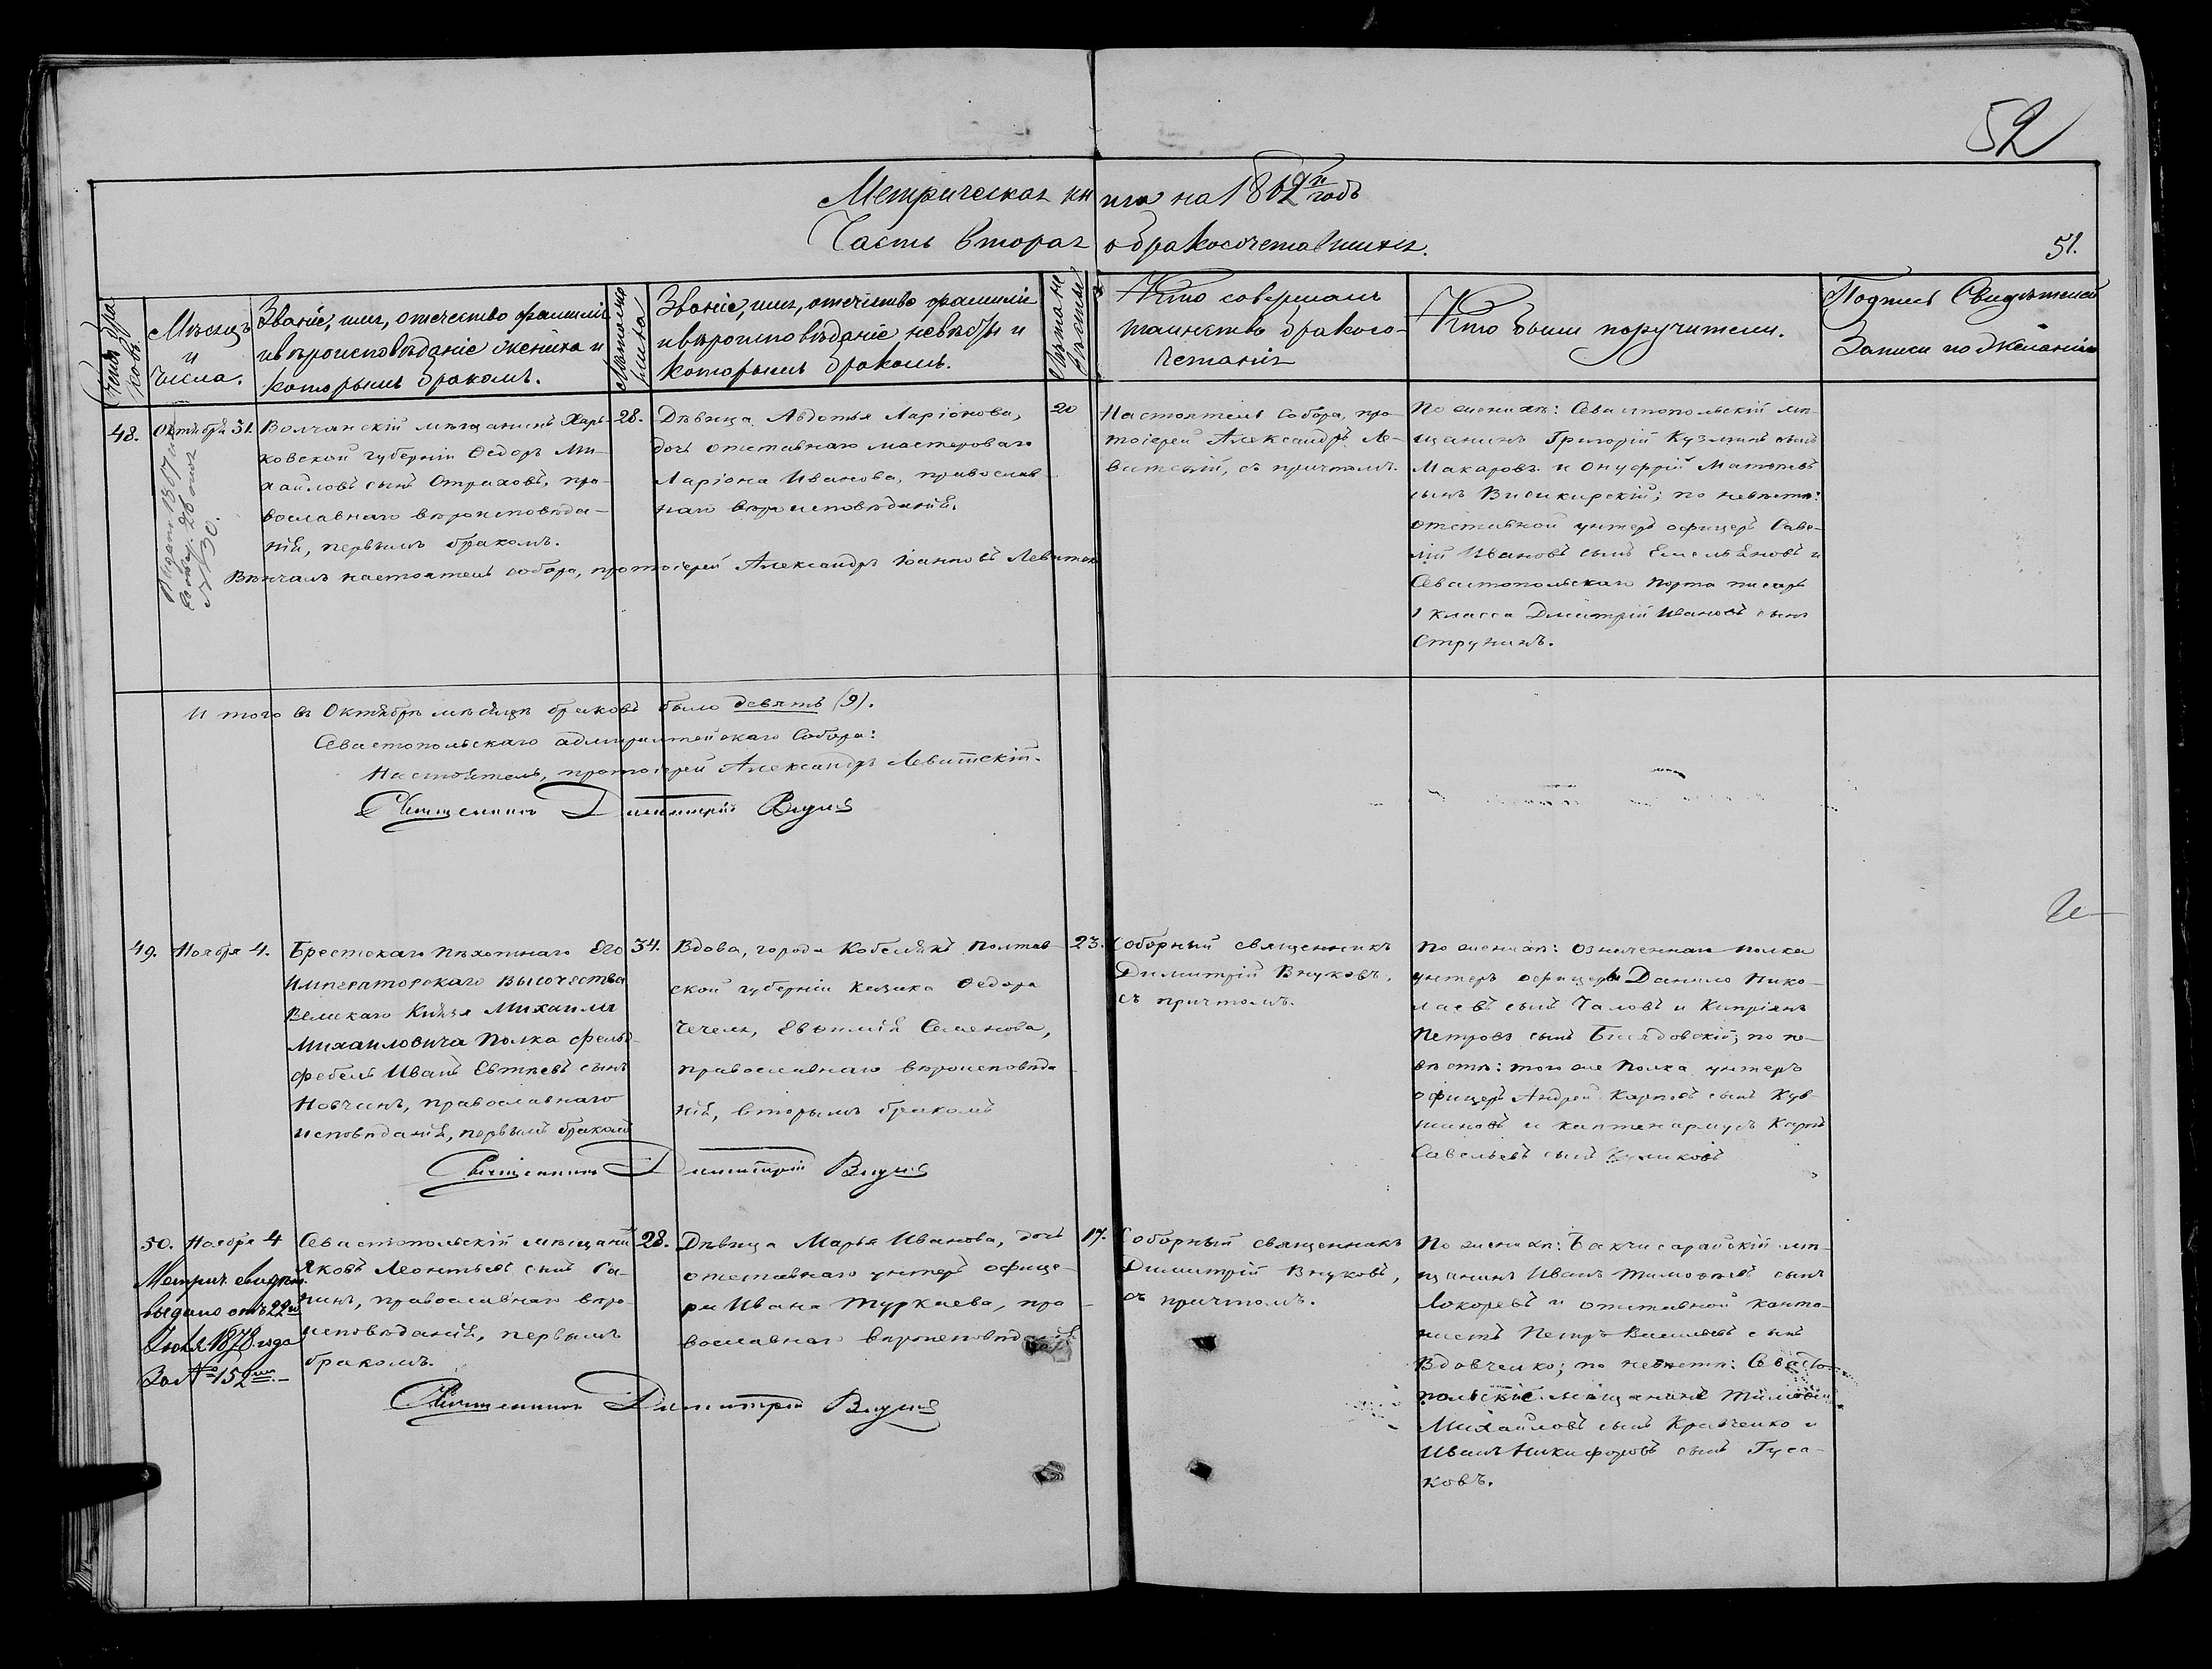 52
Метрическая книга на 1862й годъ
Часть вторая о бракосочетавшихся.
51.
Счетъ браковъ.
Мѣсяцъ и числа.
Званіе, имя, отчество, фамилія и вѣроисповѣданіе жениха и которымъ бракомъ.
Лѣта жениха
Званіе, имя, отчество фамилія и вѣроисповѣданіе невѣсты и которымъ бракомъ.
Лѣта невѣсты
Кто совершалъ таинство бракосочетанія
Кто были поручители.
Подпись Свидѣтелей Записи по Желанію
48.
Октября 31.
Волчанскій мѣщанинъ Харь-
ковской губерніи Ѳедоръ Ми-
хайловъ сынъ Страховъ, пра-
вославнаго вѣроисповѣда-
нія, первымъ бракомъ.
28.
Дѣвица Авдотья Ларіонова,
дочь отставнаго мастероваго
Ларіона Иванова, православ-
наго вѣроисповѣданія.
20
Настоятель собора, про-
тоіерей Александръ Ле-
витскій, съ причтомъ.
По женихѣ: Севастопольскій мѣ-
щанинъ Григорій Кузминъ сынъ
Макаровъ и Онуфрій Матвѣевъ
сынъ ; по невѣстѣ:
отставной унтеръ офицеръ Саве-
лій Ивановъ сынъ Емельяновъ и
Севастопольскаго порта писарь
1 класса Дмитрій Ивановъ сынъ
Струнинъ.
№ 30.
Вѣнчалъ настоятель собора, протоіерей Александръ Іоанновъ Левитск
И того въ Октябрѣ мѣсяцѣ браковъ было девять (9).
Севастопольскаго адмиралтейскаго Собора:
Настоятель, протоіерей Александръ Левитскій.
Священникъ Димитрій Внуковъ
49.
Ноября 4.
Брестскаго пѣхотнаго Его
Императорскаго Высочества
Великаго Князя Михаила
Михаиловича Полка фельд-
фебель Иванъ Евтѣевъ сынъ
Новчинъ, православнаго
исповѣданія, первымъ бракомъ
34.
Вдова, города Кобелякъ Полтав-
ской губерніи казака Ѳедора
Чечель, Евѳимія Семенова,
православнаго вѣроисповѣда
нія, вторымъ бракомъ
23.
Соборный священникъ
Димитрій Внуковъ,
съ причтомъ.
По женихѣ: означеннаго полка
унтеръ офицеры Данило Нико-
лаевъ сынъ Чаловъ и Кипріянъ
Петровъ сынъ ; по не-
вѣстѣ: того же Полка унтеръ
офицеръ Андрей Карповъ сынъ Кув-
шиновъ и каптенармусъ Карпъ
Савельевъ сынъ Куликовъ
Священникъ Димитрій Внуковъ
50.
Ноября 4
Метрич. свидѣт.
выдано отъ 22го
Іюля 1878 года
За № 152мъ.-
Севастопольскій мѣщанинъ
Яковъ Леонтьевъ сынъ Га-
нинъ, православнаго вѣро-
исповѣданія, первымъ
бракомъ.
28.
Дѣвица Марья Иванова, дочь
отставнаго унтеръ офице-
ра Ивана Туркаева, пра
вославнаго вѣроисповѣданія
17.
Соборный священникъ
Димитрій Внуковъ,
съ причтомъ.
По женихѣ: Бакчисарайскій мѣ-
щанинъ Иванъ Тимоѳеевъ сынъ
Локоревъ и отставной канто-
нистъ Петръ Васильевъ сынъ
Вдовченко; по невѣстѣ: Севасто-
польскіе мѣщанинъ Тимоѳей
Михайловъ сынъ Кравченко и
Иванъ Никифоровъ сынъ Гуса-
ковъ.
Священникъ Димитрій Внуковъ